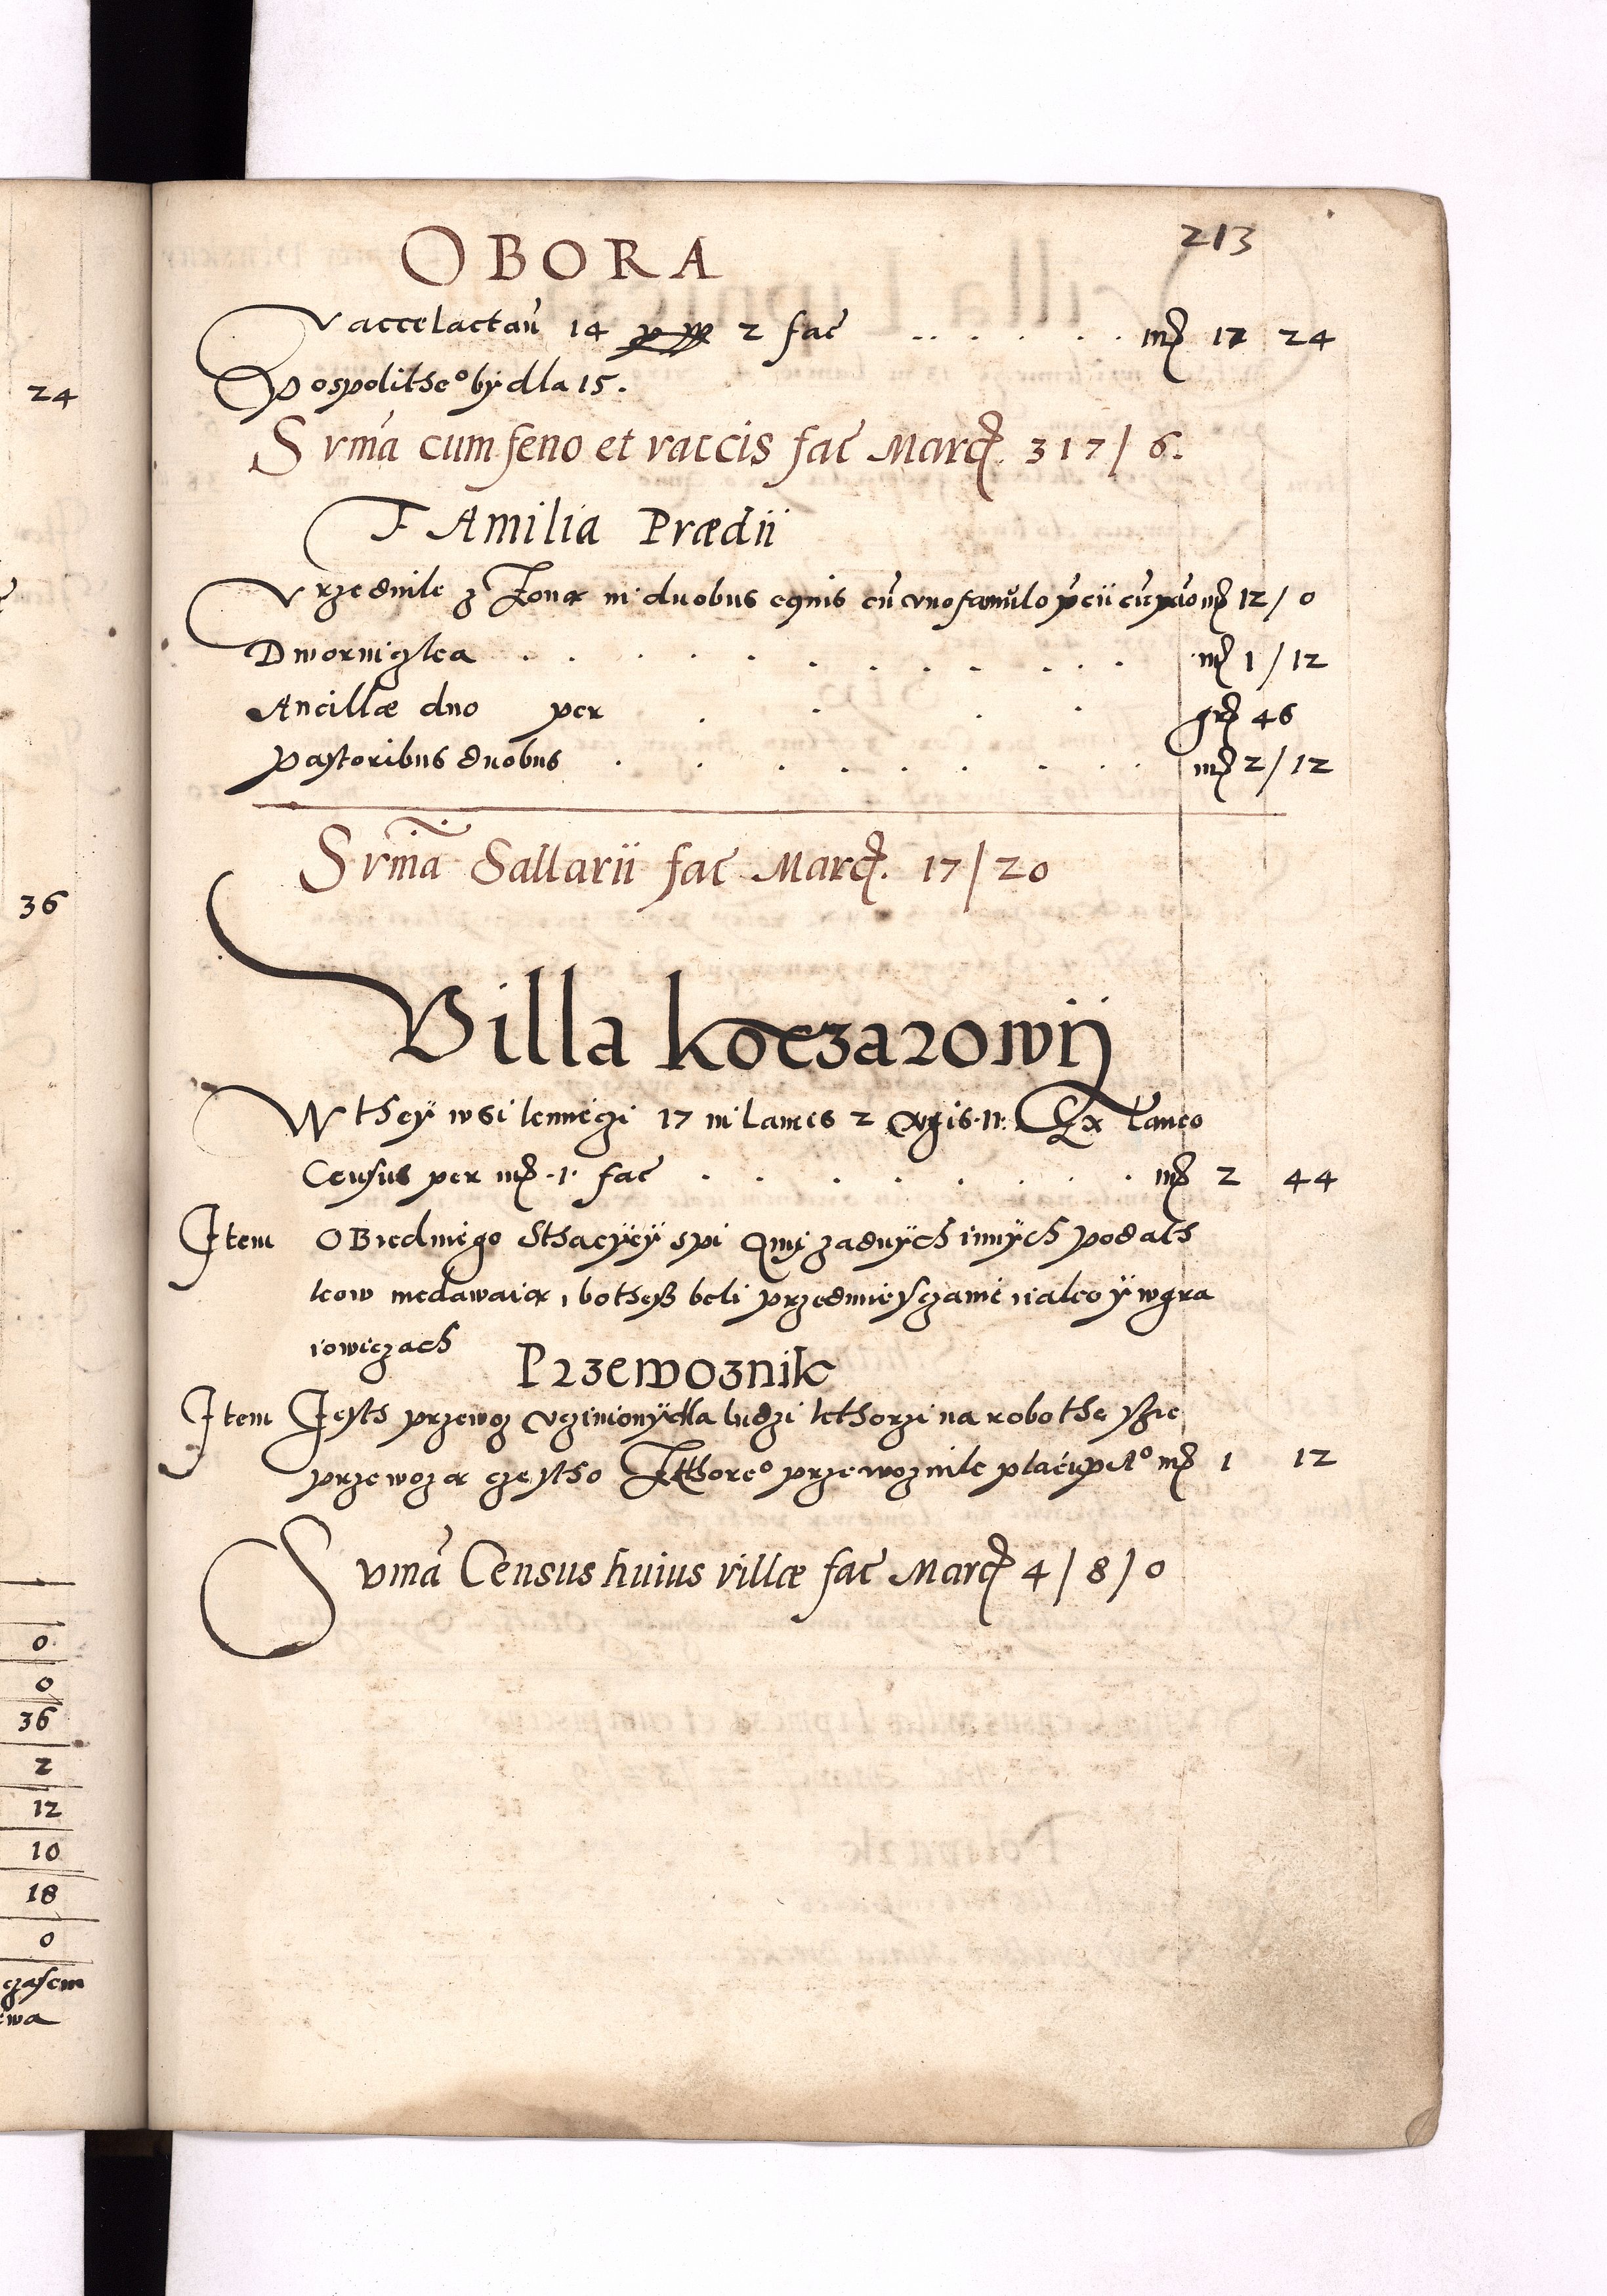 24
36
0
0
36
2
12
10
18
0
czasem
ewa
213
OBORA
Vaccelactaṅ 14 2 fac̃ mr̃ 17 24
Pospolitheo bydla 15.
Sum̃a cum feno et vaccis fac̃ Marcr̃. 317/6.
FAmilia Prædii
Vrzednik z Zoną in duobus equis cũ vno famulo mr̃ 12/0
Dworniczka mr̃ 1/12
Ancillæ duo per gr̃ 46
Pastoribus duobus mr̃ 2/12
Sum̃a Sallarii fac̃ Marcr̃. 17/20
Villa Koczarowij
W they wsi kmieczi 17 in laneis 2 Ex laneo
Census per mr̃ .1. fac̃ mr̃ 2 44
Item OBiedniego Sthacÿeÿ spi żadnÿch innÿch podath
kow niedawaią, bothesz beli przedmiesczanie iako ÿ wgra
iowiczach
Przewoznik
Item Jesth przewoz vczinionÿ dla ludzi kthorzi na robothe ssie
przewożą czestho kthoreo przewoznik mr̃ 1 12
Sum̃a Census huius villæ fac̃ Marcr̃ 4/8/0